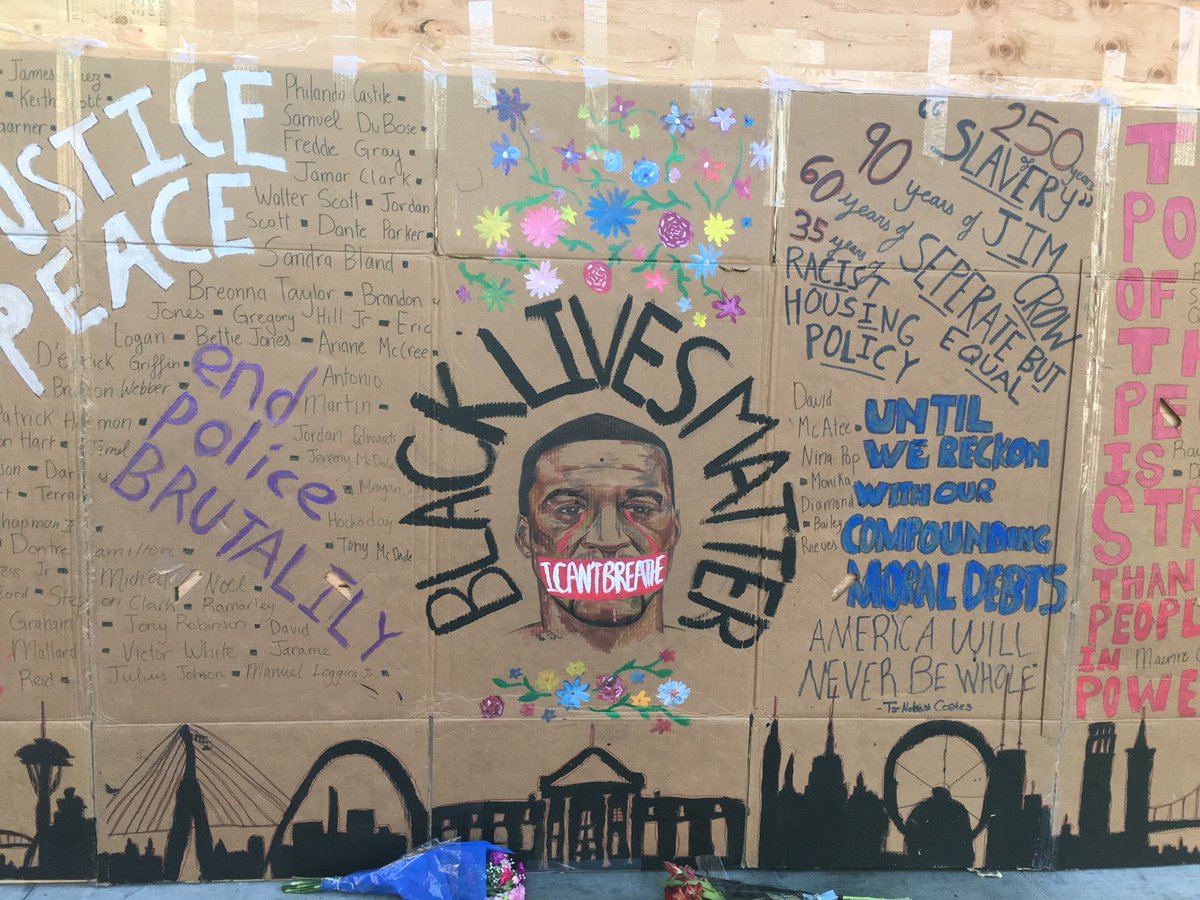 James
Keith
Garner
USTICE
PEACE
Philando Castile
Samuel DuBose
Freddie Gray
Jamar Clark
Walter Scott - Jordan
Scott - Dante Parker
Sandra Bland
Breonna Taylor - Brandon
Jones - Gregory Hill Jr - Eric
Logan - Bettie Jones - Ariane McCree
Griffin
Webber
Antonio
Martin
Jordan Edwards
Jeremy McDole
Meagan
Hockaday
Tony McDade
end
police
BRUTALILY
Patrick
Hart
Chapman Jr
Dontre Hamilton
Michael Noel
Clark - Ramarley
Graham - Tony Robinson - David
Mallard - Victor White - Jarame
Reid - Julius Johnson - Manuel Loggins Jr
BLACK LIVES MATTER
I CAN'T BREATHE
"250 years
of
SLAVERY"
90 years of JIM CROW
60 years of SEPERATE BUT EQUAL
35 years of
RACIST
HOUSING
POLICY
David
McAtee
Nina Pop
Monika
Diamond
Bailey
Reeves
UNTIL
WE RECKON
WITH OUR
COMPOUNDING
MORAL DEBTS
AMERICA WILL
NEVER BE WHOLE"
- Ta-Nehisi Coates
T
PO
OF
T
PE
IS
STR
THAN
PEOPLE
IN
POWE